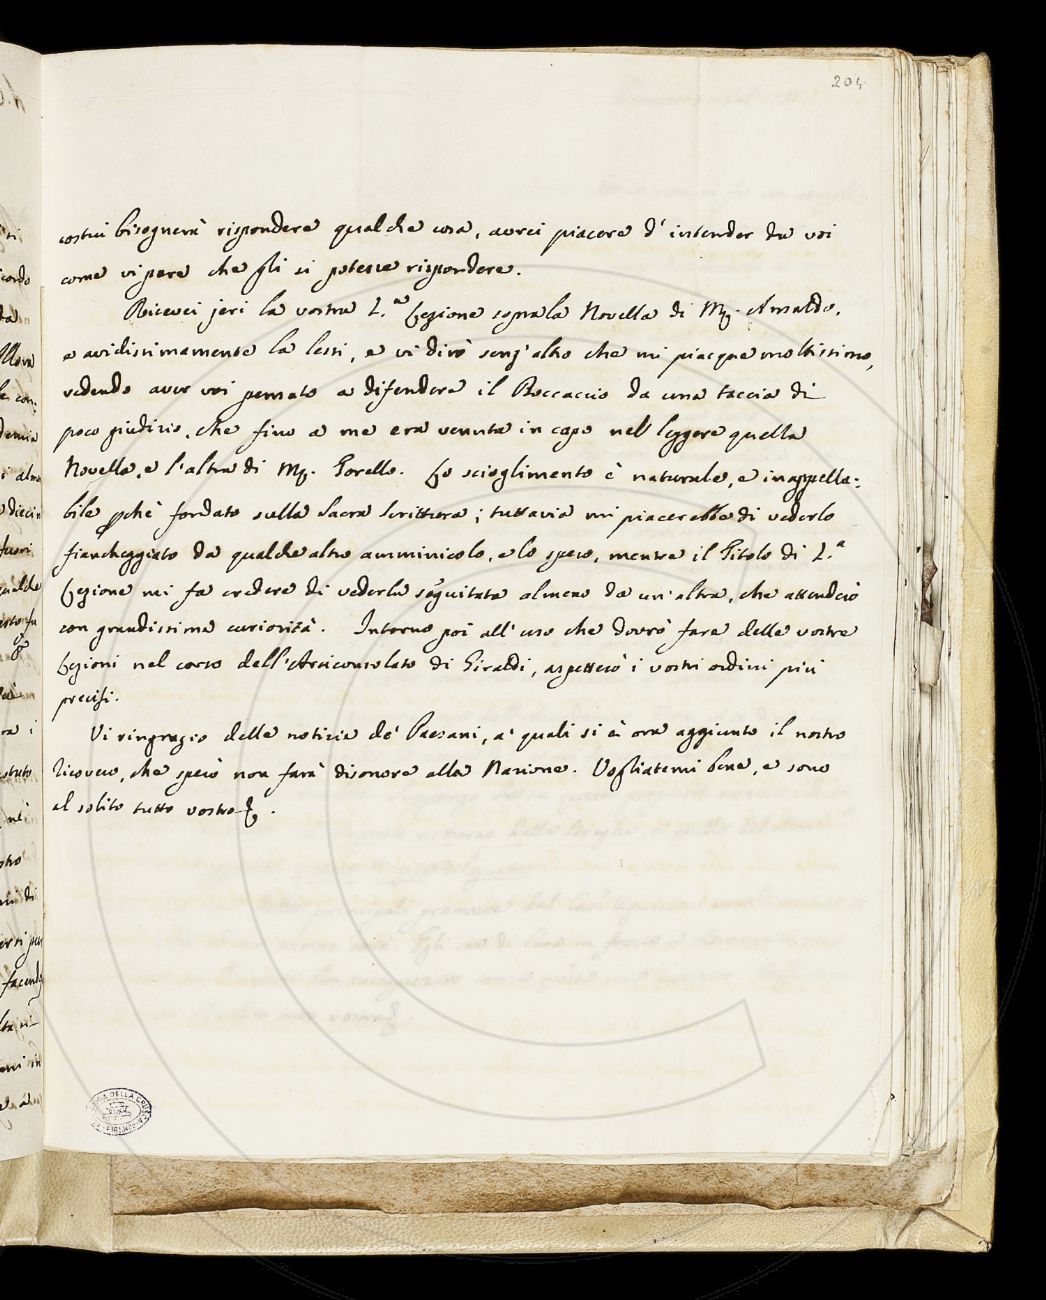 204
costui bisognerà rispondere qualche cosa, averei piacere d'intender da voi
come vi pare che gli si potesse rispondere.
Ricevei jeri la vostra L.ª Lezione sopra la Novella di Mſ. Ansaldo,
e avidissimamente la lessi, e vi dirò senz'altro che mi piacque moltissimo,
vedendo aver voi pensato a difendere il Boccaccio da una taccia di
poco giudizio, che fino a me era venuta in capo nel leggere quella
Novella, e l'altra di Mſ. Torello. Lo scioglimento è naturale, e inappella=
bile pchè fondato sulla Sacra Scrittura; tuttavia mi piacerebbe di vederlo
fiancheggiato da qualche altro amminicolo, e lo spero, mentre il Titolo di L.ª
Lezione mi fa credere di vederla seguitata almeno da un'altra, che attenderò
con grandissima curiosità. Intorno poi all'uso che dovrò fare delle vostre
Lezioni nel corso dell'Arciconsolato di Giraldi, aspetterò i vostri ordini più
precisi.
Vi ringrazio delle notizie de' Paesani, a' quali si è ora aggiunto il nostro
che sperò non farà disonore alla Nazione. Vogliatemi bene, e sono
al solito tutto vostro